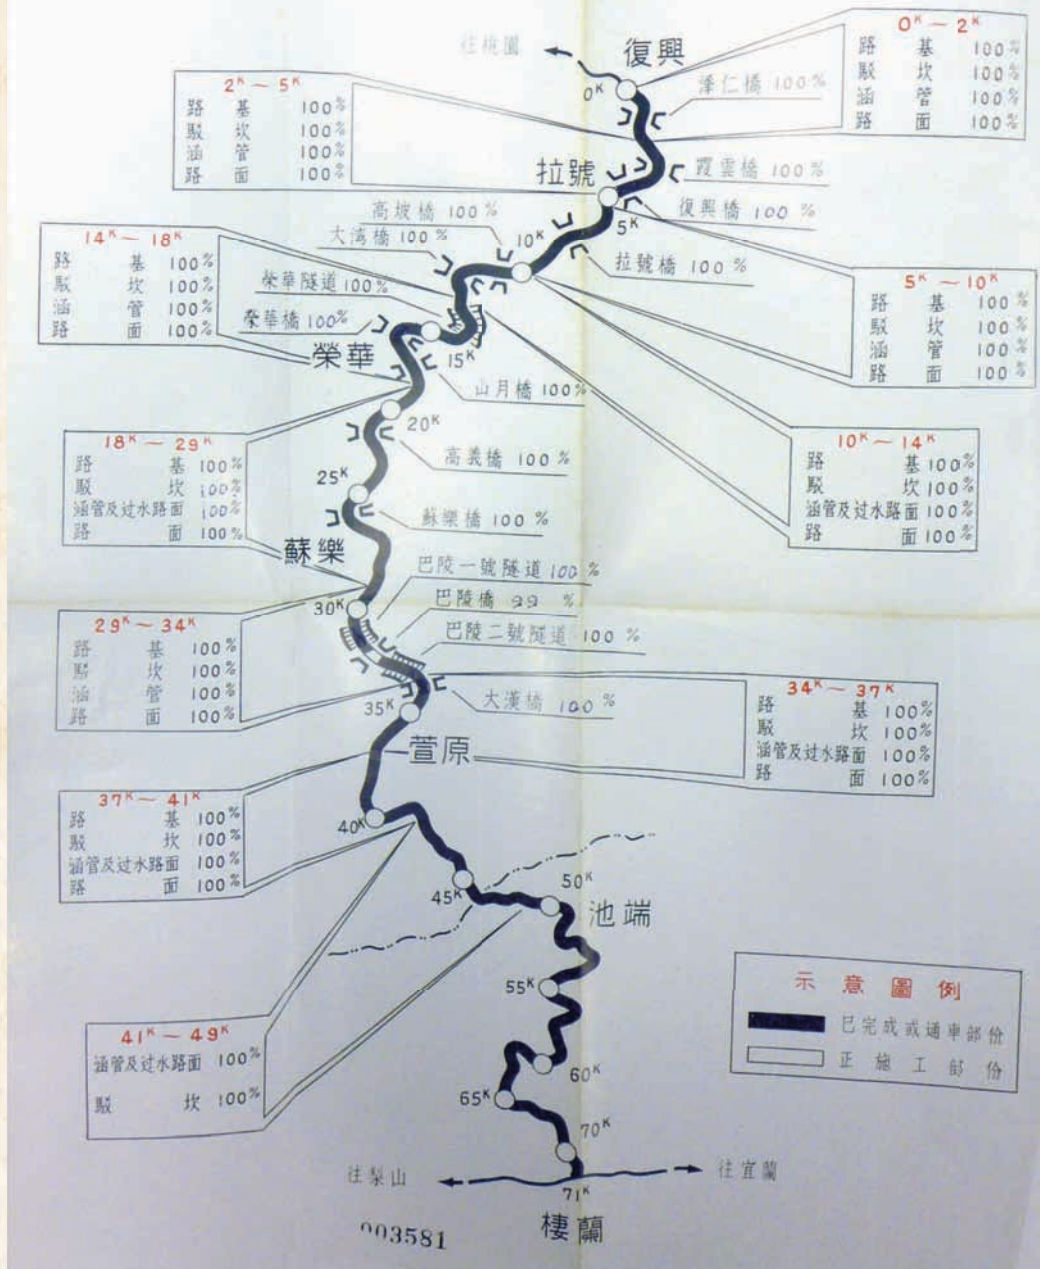 往桃園
復興
0ᴷ
澤仁橋 100%
0ᴷ～2ᴷ
路基 100%
駁坎 100%
涵管 100%
路面 100%
2ᴷ～5ᴷ
路基 100%
駁坎 100%
涵管 100%
路面 100%
拉號
霞雲橋 100%
復興橋 100%
5ᴷ
拉號橋 100%
高坡橋 100%
大湾橋 100%
10ᴷ
14ᴷ～18ᴷ
路基 100%
駁坎 100%
涵管 100%
路面 100%
榮華隧道 100%
榮華橋 100%
榮華
15ᴷ
5ᴷ～10ᴷ
路基 100%
駁坎 100%
涵管 100%
路面 100%
山月橋 100%
20ᴷ
高義橋 100%
18ᴷ～29ᴷ
路基 100%
駁坎 100%
涵管及过水路面 100%
路面 100%
10ᴷ～14ᴷ
路基 100%
駁坎 100%
涵管及过水路面 100%
路面 100%
25ᴷ
蘇樂橋 100%
蘇樂
巴陵一號隧道 100%
30ᴷ
巴陵橋 99%
巴陵二號隧道 100%
29ᴷ～34ᴷ
路基 100%
駁坎 100%
涵管 100%
路面 100%
大漢橋 100%
35ᴷ
萱原
34ᴷ～37ᴷ
路基 100%
駁坎 100%
涵管及过水路面 100%
路面 100%
37ᴷ～41ᴷ
路基 100%
駁坎 100%
涵管及过水路面 100%
路面 100%
40ᴷ
45ᴷ
50ᴷ
池端
55ᴷ
41ᴷ～49ᴷ
涵管及过水路面 100%
駁坎 100%
示意圖例
已完成或通車部份
正施工部份
60ᴷ
65ᴷ
70ᴷ
往梨山
往宜蘭
71ᴷ
棲蘭
003581